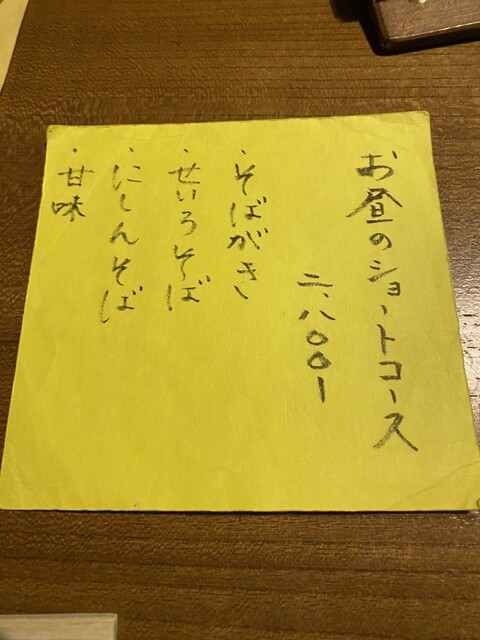 お昼のショートコース
二、八〇〇ー
・そばがき
・せいろそば
・にしんそば
・甘味